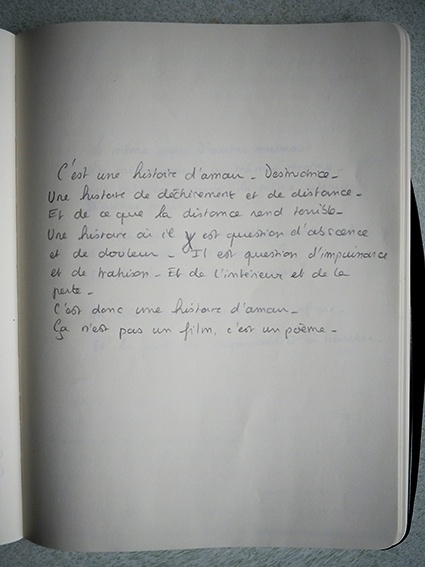 C'est une histoire d'amour - Destructrice -
Une histoire de déchirement et de distance -
Et de ce que la distance rend terrible -
Une histoire où il y est question d'abscence
et de douleur - Il est question d'impuissance
et de trahison - Et de l'intérieur et de la
perte -
C'est donc une histoire d'amour -
Ça n'est pas un film, c'est un poème -